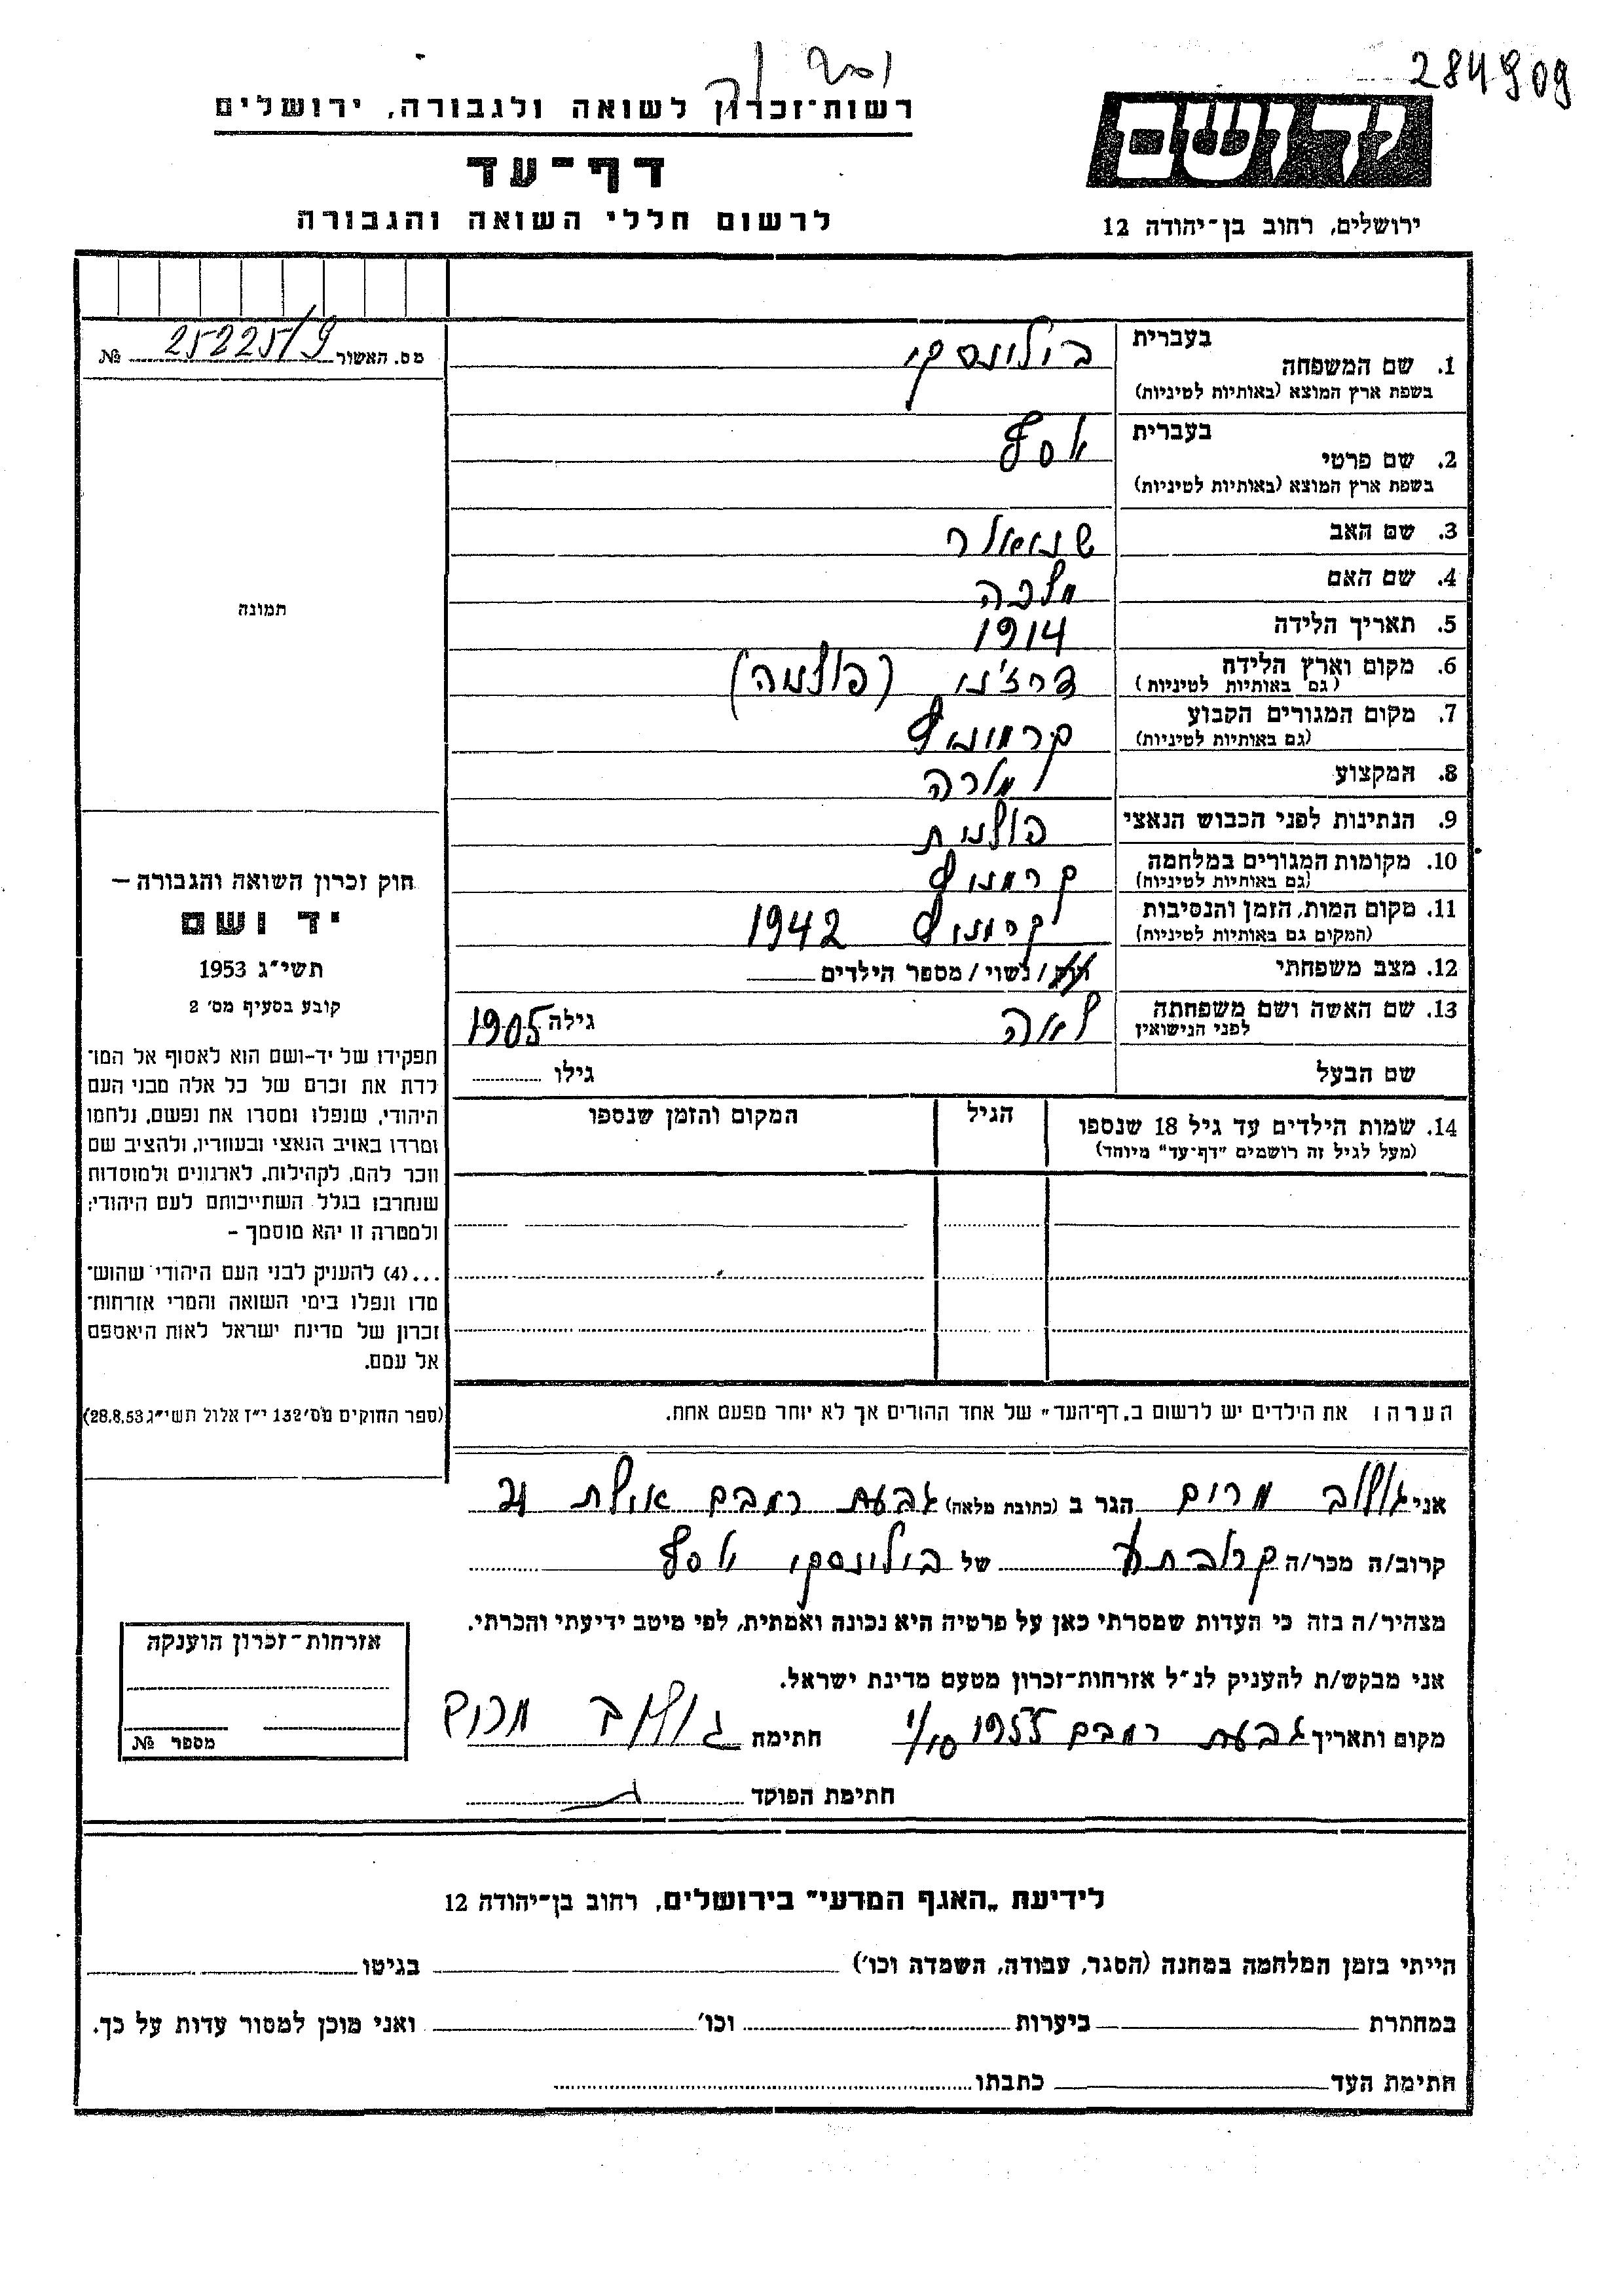 284909
רשות-זכרון לשואה ולגבורה, ירושלים
דף-עד
לרשום חללי השואה והגבורה
יד ושם
ירושלים, רחוב בן-יהודה 12
מס. האשור 25225/9 №
תמונה
חוק זכרון השואה והגבורה –
יד ושם
תשי״ג 1953
קובע בסעיף מס׳ 2
תפקידו של יד-ושם הוא לאסוף אל המו־
לדת את זכרם של כל אלה מבני העם
היהודי, שנפלו ומסרו את נפשם, נלחמו
ומרדו באויב הנאצי ובעוזריו, ולהציב שם
וזכר להם, לקהילות, לארגונים ולמוסדות
שנחרבו בגלל השתייכותם לעם היהודי;
ולמטרה זו יהא מוסמך –
...(4) להעניק לבני העם היהודי שהוש־
מדו ונפלו בימי השואה והמרי אזרחות־
זכרון של מדינת ישראל לאות היאספם
אל עמם.
(ספר החוקים מס׳ 132 י״ז אלול תשי״ג 28.8.53)
בעברית
1. שם המשפחה בילינסקי
בשפת ארץ המוצא (באותיות לטיניות)
בעברית
2. שם פרטי יוסף
בשפת ארץ המוצא (באותיות לטיניות)
3. שם האב
4. שם האם מלכה
5. תאריך הלידה 1914
6. מקום וארץ הלידה דרז׳נו (פולניה)
(גם באותיות לטיניות)
7. מקום המגורים הקבוע
(גם באותיות לטיניות)
8. המקצוע מורה
9. הנתינות לפני הכבוש הנאצי פולנית
10. מקומות המגורים במלחמה
(גם באותיות לטיניות)
11. מקום המות, הזמן והנסיבות 1942
(המקום גם באותיות לטיניות)
12. מצב משפחתי רוק / נשוי / מספר הילדים
13. שם האשה ושם משפחתה לאה גילה 1905
לפני הנישואין
שם הבעל גילו
14. שמות הילדים עד גיל 18 שנספו הגיל המקום והזמן שנספו
(מעל לגיל זה רושמים "דף-עד" מיוחד)
הערה: את הילדים יש לרשום ב„דף-העד״ של אחד ההורים אך לא יותר מפעם אחת.
אני גולוב מרים הגר ב (כתובת מלאה) גבעת רמבם אילת
קרוב/ה מכר/ה קרובת של בילינסקי יוסף
מצהיר/ה בזה כי העדות שמסרתי כאן על פרטיה היא נכונה ואמתית, לפי מיטב ידיעתי והכרתי.
אני מבקש/ת להעניק לנ״ל אזרחות-זכרון מטעם מדינת ישראל.
מקום ותאריך גבעת רמבם 1955 1/10 חתימה גולוב מרים
חתימת הפוקד
אזרחות-זכרון הוענקה
מספר №
לידיעת „האגף המדעי״ בירושלים, רחוב בן-יהודה 12
הייתי בזמן המלחמה במחנה (הסגר, עבודה, השמדה וכו׳) בגיטו
במחתרת ביערות וכו׳ ואני מוכן למסור עדות על כך.
חתימת העד כתבתו